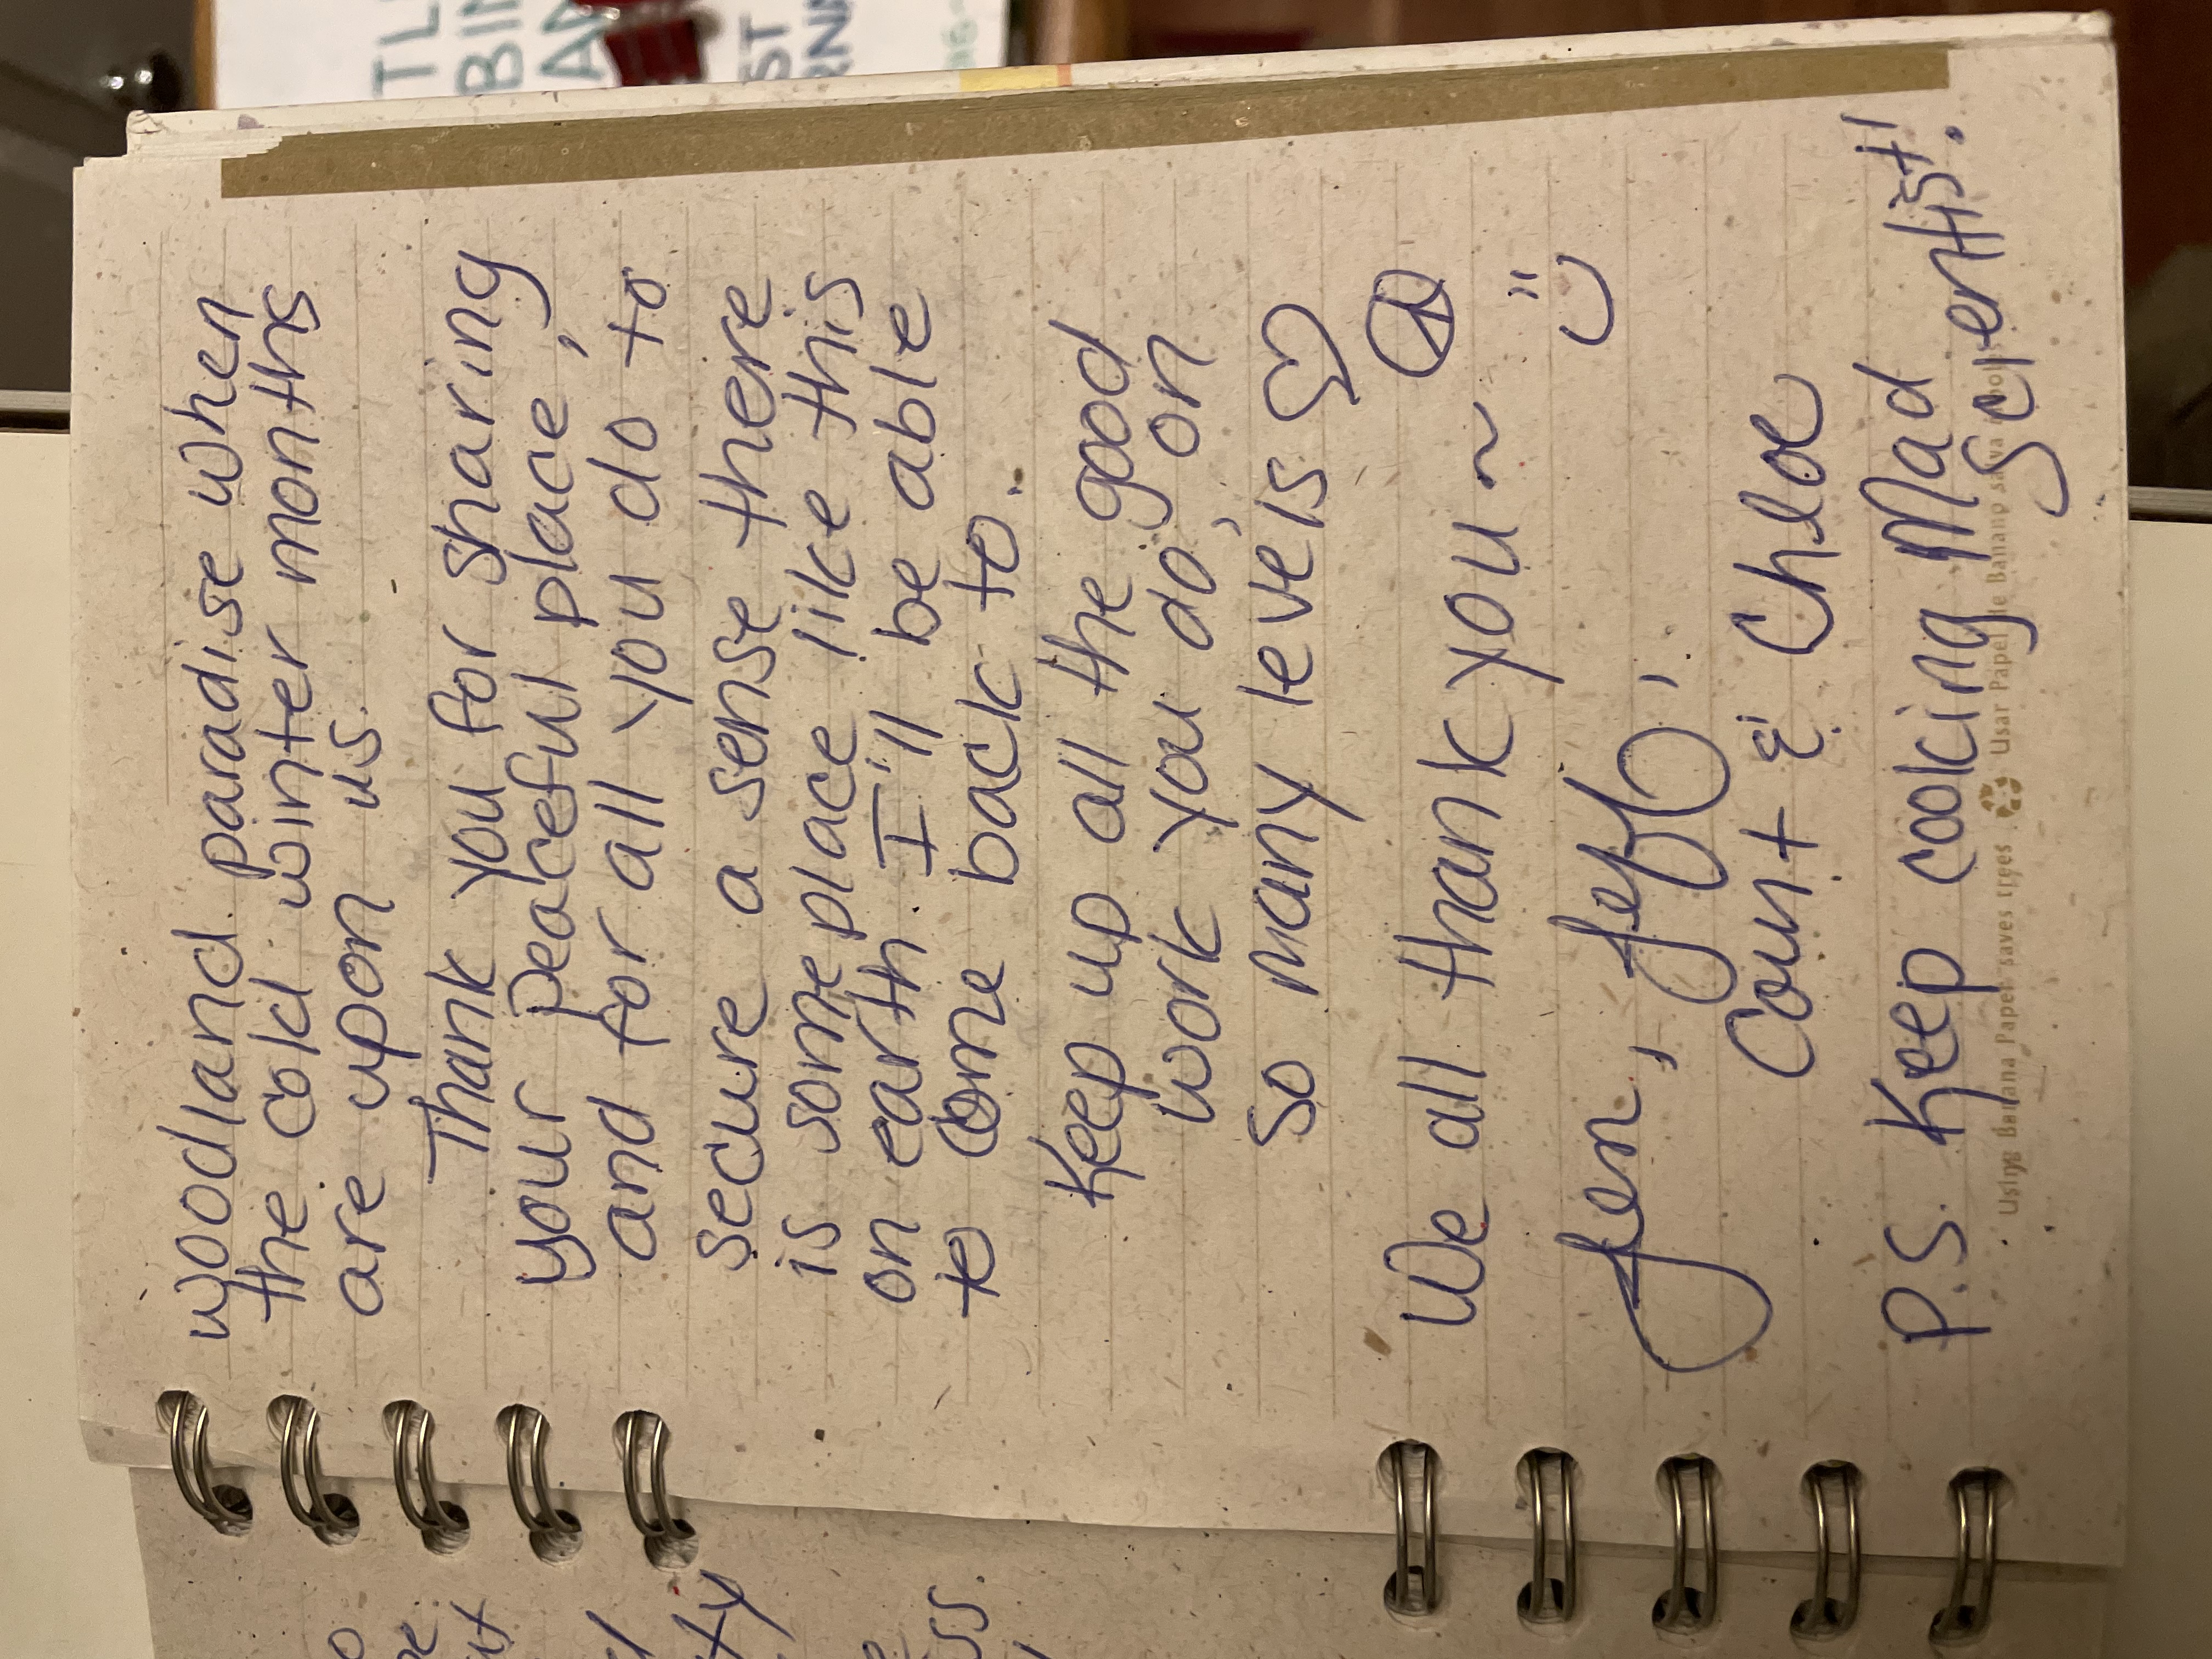 woodland paradise when
the cold winter months
are upon us.
Thank you for sharing
your peaceful place,
and for all you do to
secure a sense there
is someplace like this
on earth. I'll be able
to come back to.
Keep up all the good
work you do, on
so many levels ♡
We all thank you ~ ☮
Jen, Jeff,
Count & Chloe
P.S. Keep cooking Mad
Scientist!
Using Banana Paper saves trees
Usar Papel de Banano salva árboles